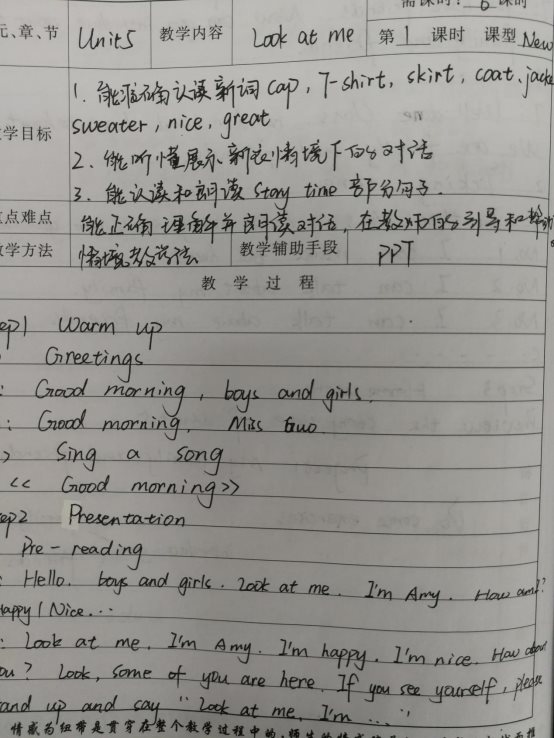 需课时: 6 课时
元、章、节 Unit5 教学内容 Look at me 第 1 课时 课型 New
1. 能准确认读新词 cap, T-shirt, skirt, coat, jacke
学目标 sweater, nice, great
2. 能听懂展示新衣情境下的对话
3. 能认读和朗读 Story time 部分句子.
点难点 能正确理解并朗读对话, 在教师的引导和
学方法 情境教学法 教学辅助手段 PPT
教 学 过 程
ep1 Warm up
Greetings
: Good morning, boys and girls.
: Good morning, Miss Guo.
> Sing a song
<< Good morning>>
ep2 Presentation
Pre-reading
: Hello, boys and girls. Look at me. I'm Amy. How am I?
Happy / Nice...
: Look at me. I'm Amy. I'm happy. I'm nice. How about
ou? Look, some of you are here. If you see yourself, please
and up and say "Look at me, I'm ..."
情感为纽带是贯穿在整个教学过程中的,师生的情感